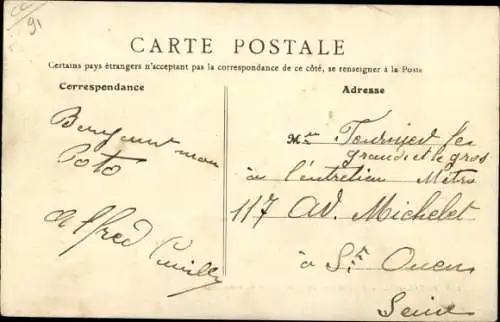 91
CARTE POSTALE
Certains pays étrangers n'acceptant pas la correspondance de ce côté, se renseigner à la Poste
Correspondance
Bonjour mon
Coto
Alfred
Adresse
Mrs Fournier les
grand et le gros
à l'entretien Métro
117 AV. Michelet
à St Ouen
Seine